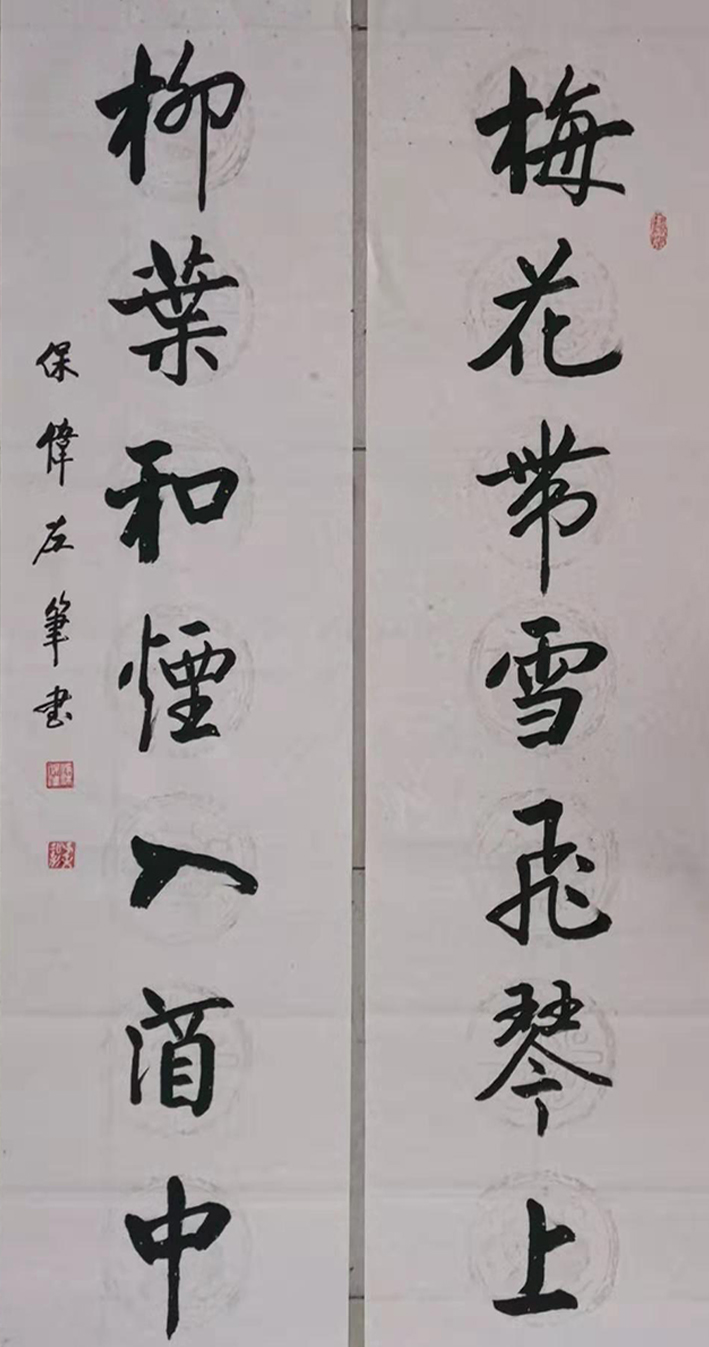 梅花帶雪飛琴上
柳葉和煙入酒中
保偉左筆書